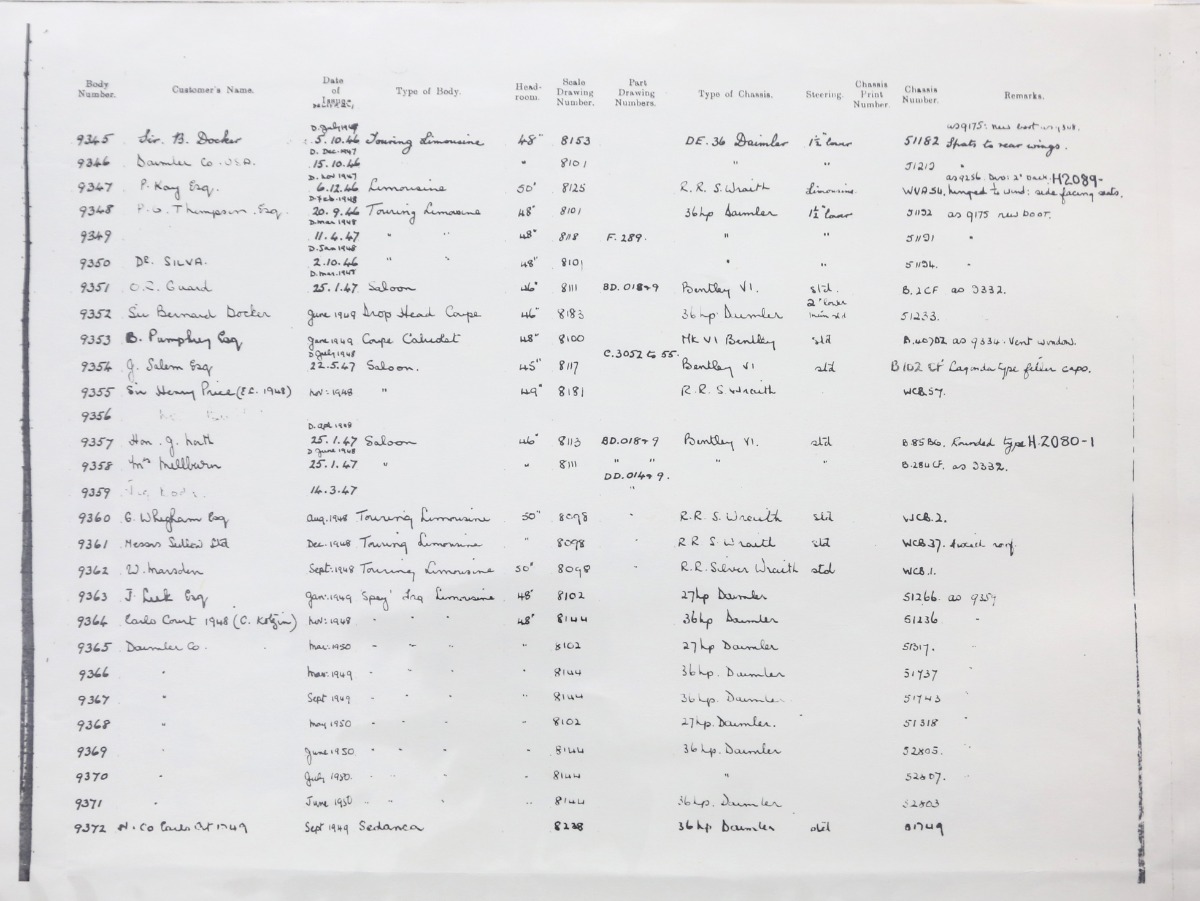 Body Number. Customer's Name. Date of Issue. Type of Body. Head-room. Scale Drawing Number. Part Drawing Numbers. Type of Chassis. Steering. Chassis Print Number. Chassis Number. Remarks.
D. July 1949 as 9175: new boot
9345 Sir. B. Docker 5.10.46 Touring Limousine 48" 8153 DE.36 Daimler 1½" lower 51182 Spats to rear wings.
D. Dec. 1947
9346 Daimler Co. U.S.A. 15.10.46 " 8101 " " 51212 "
D. Nov 1947 as 9256. H2089-
9347 P. Kay Esq. 6.12.46 Limousine 50" 8125 R.R. S. Wraith Limousine WVA54, hinged to wind: side facing seats.
D. Feb. 1948
9348 P.G. Thompson. Esq. 20.9.46 Touring Limousine 48" 8101 36hp Daimler 1½" lower 51192 as 9175 new boot.
D. Mar 1948
9349 11.4.47 " " 48" 8118 F.289. " " 51191 "
D. Jan 1948
9350 DE. SILVA. 2.10.46 " " 48" 8101 " " 51194. "
D. Mar. 1947
9351 Guard 25.1.47 Saloon 46" 8111 BD.01849 Bentley VI. std. B.2CF as 9332.
2" lower
9352 Sir Bernard Docker June 1949 Drop Head Coupe 46" 8183 36hp. Daimler than std 51233.
9353 B. Pumphrey Esq June 1949 Coupe Cabriolet 48" 8100 Mk VI Bentley std B.40 as 9334. Vent window.
D July 1948 C.3052 to 55.
9354 J. Salem Esq 22.5.47 Saloon. 45" 8117 Bentley VI std B102 CF Lagonda type filler caps.
9355 Sir Henry Price (E.C. 1948) Nov: 1948 " 49" 8181 R.R. S. Wraith WCB.57.
9356
D. Apl. 1948
9357 Hon. J. North 25.1.47 Saloon 46" 8113 BD.01849 Bentley VI. std B.85BG. Rounded type H.2080-1
D June 1948
9358 Mrs Mellburn 25.1.47 " " 8111 " " " " B.284CF. as 9332.
DD.01449.
9359 14.3.47 "
9360 G. Whigham Esq Aug. 1948 Touring Limousine 50" 8098 " R.R. S. Wraith std WCB.2.
9361 Messrs Ltd Dec. 1948 Touring Limousine " 8098 " R.R. S. Wraith std WCB.37. roof.
9362 W. Marsden Sept: 1948 Touring Limousine 50" 8098 " R.R. Silver Wraith std WCB.1.
9363 J. Leek Esq Jan: 1949 'Spey' Trg Limousine 48" 8102 27hp Daimler 51266. as 9359
9364 Earls Court 1948 (C. Kotzin) Nov: 1948 " " " 48" 8144 36hp Daimler 51236 "
9365 Daimler Co. Mar: 1950 " " " " 8102 27hp Daimler 51317. "
9366 " Mar: 1949 " " " 8144 36hp. Daimler 51737
9367 " Sept 1949 " " " 8144 36hp. Daimler 51743
9368 " May 1950 " " " 8102 27hp Daimler. 51318
9369 " June 1950 " " " 8144 36hp. Daimler 52805.
9370 " July 1950. " " " " 8144 " 52807.
9371 " June 1950 " " " " 8144 36hp. Daimler 52803
9372 H. Co Earls Crt 1949 Sept 1949 Sedanca 8238 36hp Daimler std 51749